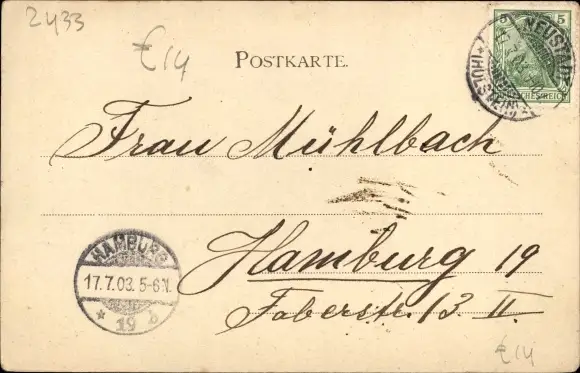 2433
€14
POSTKARTE.
5 5
NEUSTADT
(HOLSTEIN)
Frau Mühlbach
Hamburg 19
Faberstr. 13. II.
HAMBURG
17.7.03. 5-6 N.
* 19 b
€14